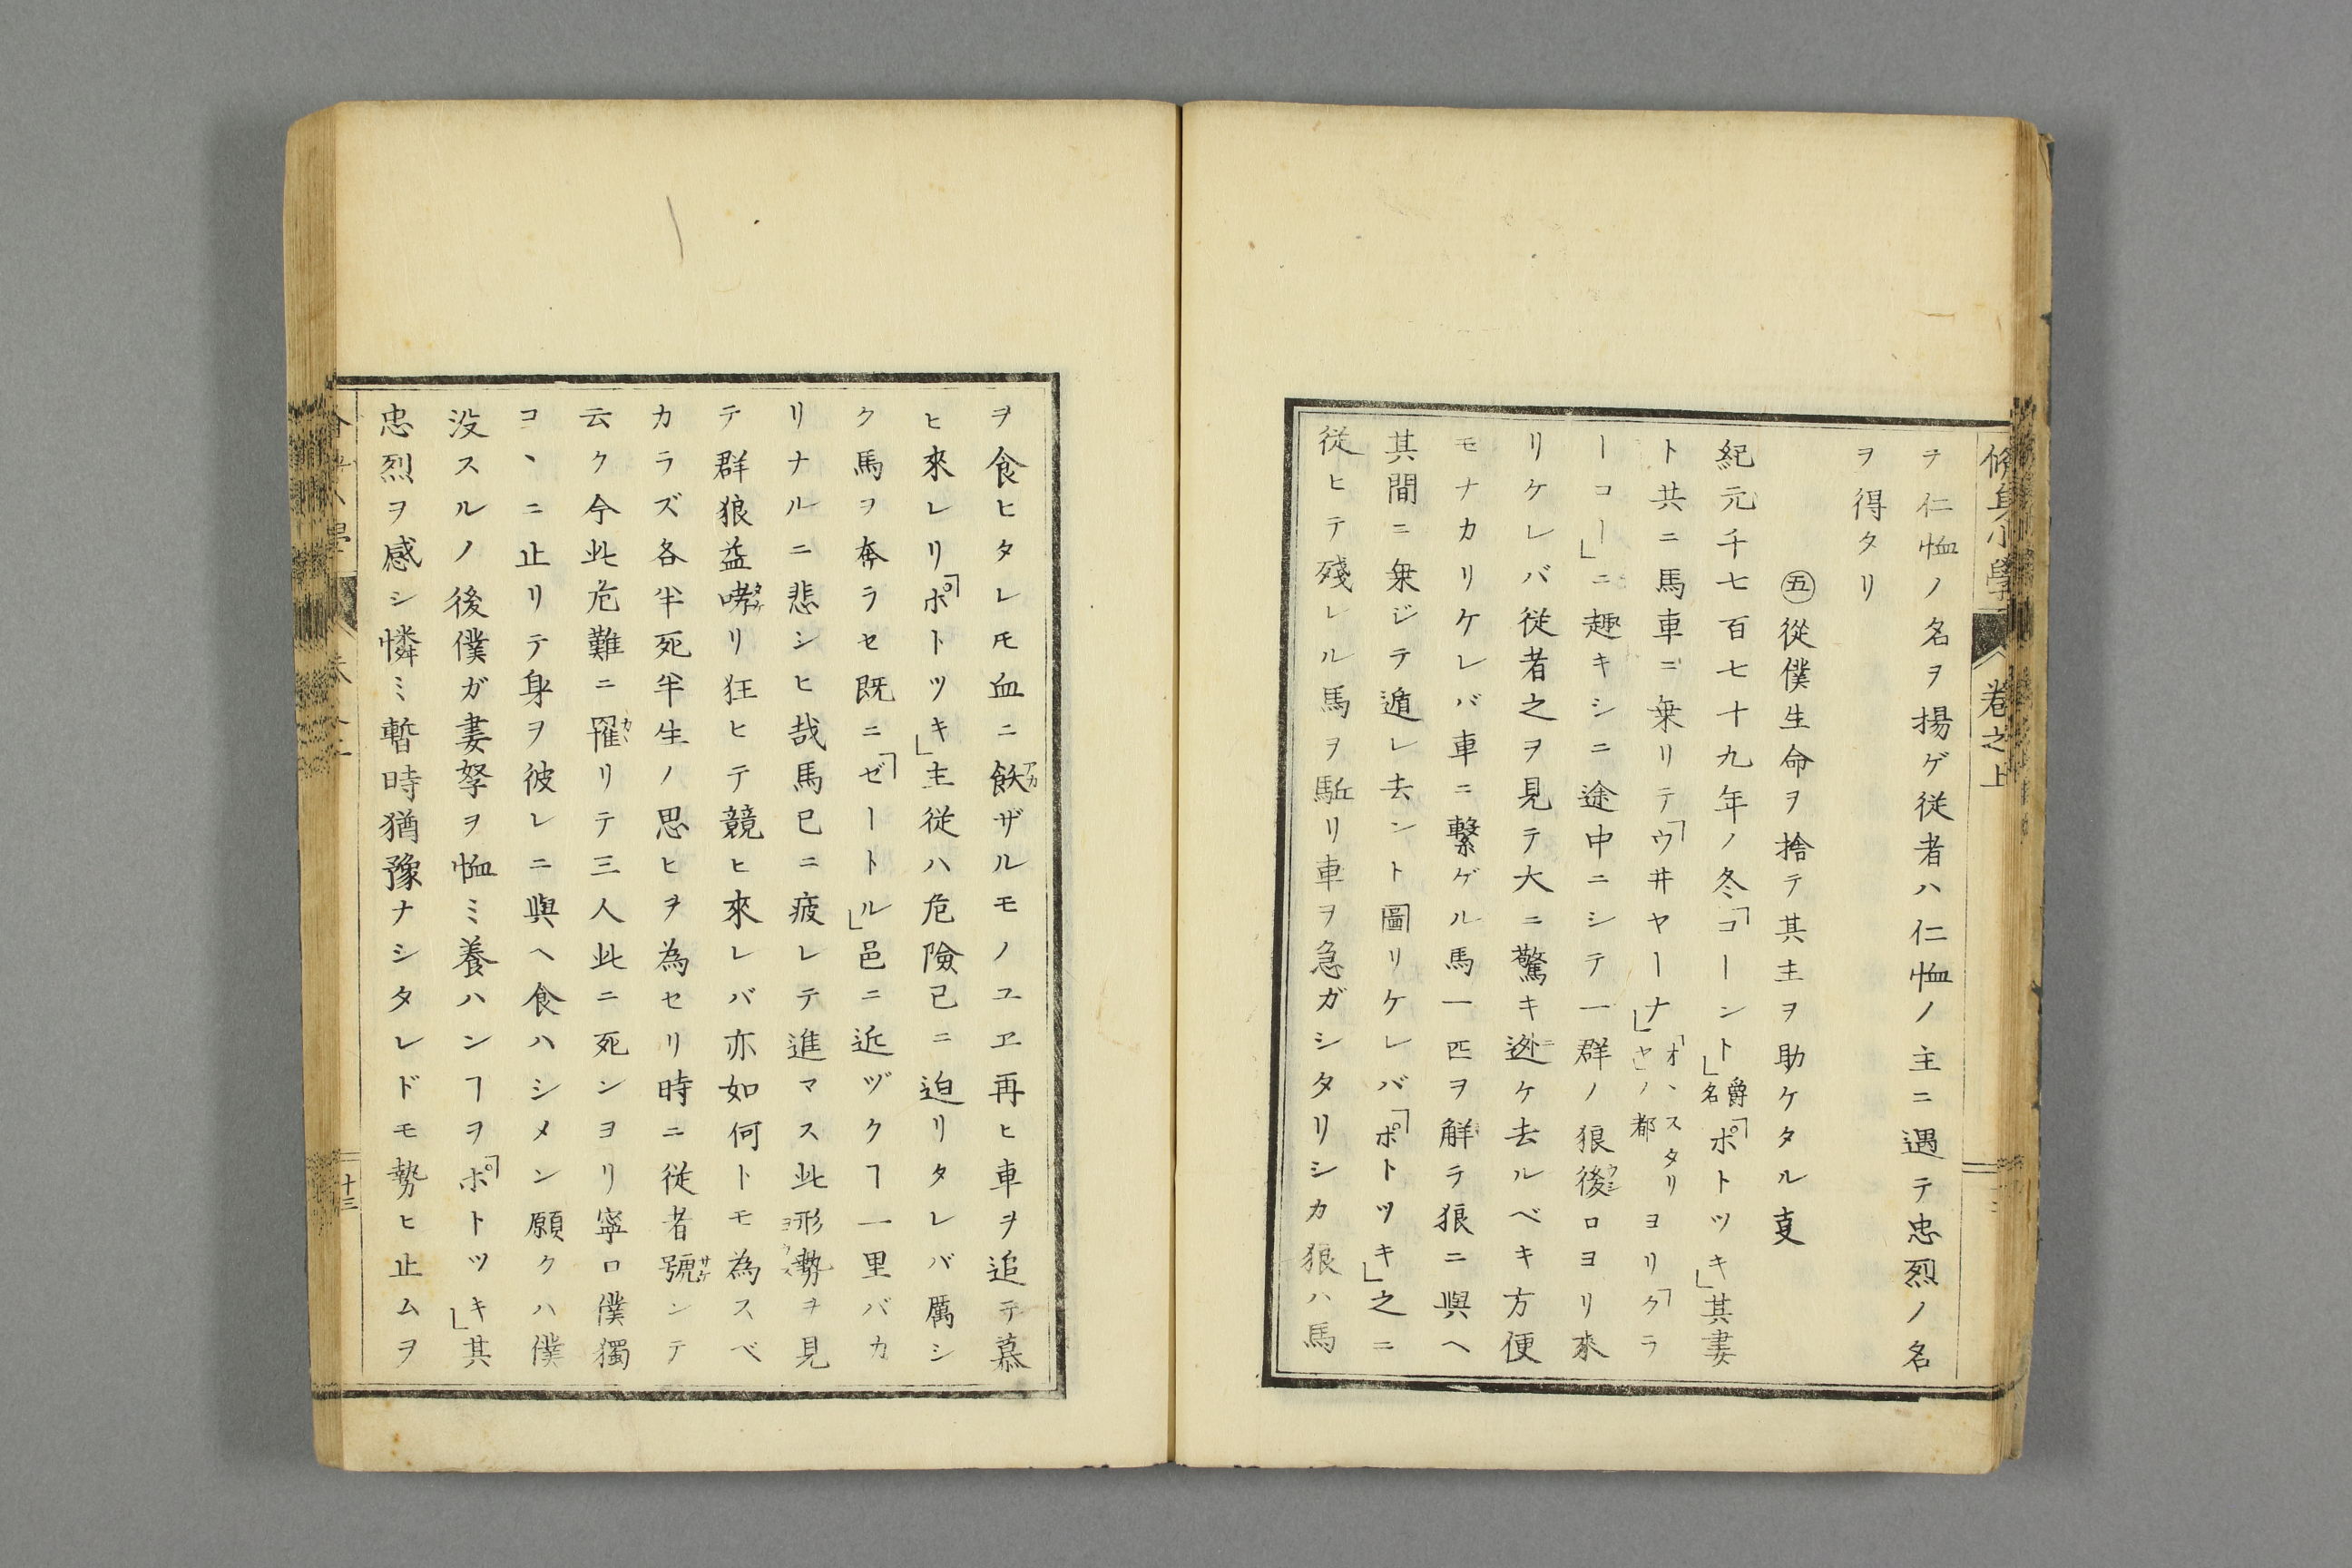 脩身小學 卷之上
テ仁恤ノ名ヲ揚ゲ従者ハ仁恤ノ主ニ遇テ忠烈ノ名
ヲ得タリ
㊄從僕生命ヲ捨テ其主ヲ助ケタル㕝
紀元千七百七十九年ノ冬「コーント」爵名「ポトツキ」其妻
ト共ニ馬車ニ乗リテ「ウ井ヤーナ」「オヽスタリヤ」ノ都ヨリ「クラ
ーコー」ニ趣キシニ途中ニシテ一群ノ狼後ロヨリ來
リケレバ従者之ヲ見テ大ニ驚キ迯ケ去ルベキ方便
モナカリケレバ車ニ繋ゲル馬一匹ヲ觧テ狼ニ與ヘ
其間ニ乗ジテ遁レ去ント圖リケレバ「ポトツキ」之ニ
従ヒテ殘レル馬ヲ駈リ車ヲ急ガシタリシカ狼ハ馬
ヲ食ヒタレ𪜈血ニ飫ザルモノユヱ再ヒ車ヲ追テ慕
ヒ來レリ「ポトツキ」主従ハ危險已ニ迫リタレバ厲シ
ク馬ヲ奔ラセ既ニ「ゼートル」邑ニ近ヅクヿ一里バカ
リナルニ悲シヒ哉馬已ニ疲レテ進マス此形勢ヲ見
テ群狼益哮リ狂ヒテ競ヒ來レバ亦如何トモ為スベ
カラズ各半死半生ノ思ヒヲ為セリ時ニ従者號ンテ
云ク今此危難ニ罹リテ三人此ニ死ンヨリ寧ロ僕獨
コヽニ止リテ身ヲ彼レニ與ヘ食ハシメン願クハ僕
没スルノ後僕ガ妻孥ヲ恤ミ養ハンヿヲ「ポトツキ」其
忠烈ヲ感シ憐ミ暫時猶豫ナシタレドモ勢ヒ止ムヲ
十三